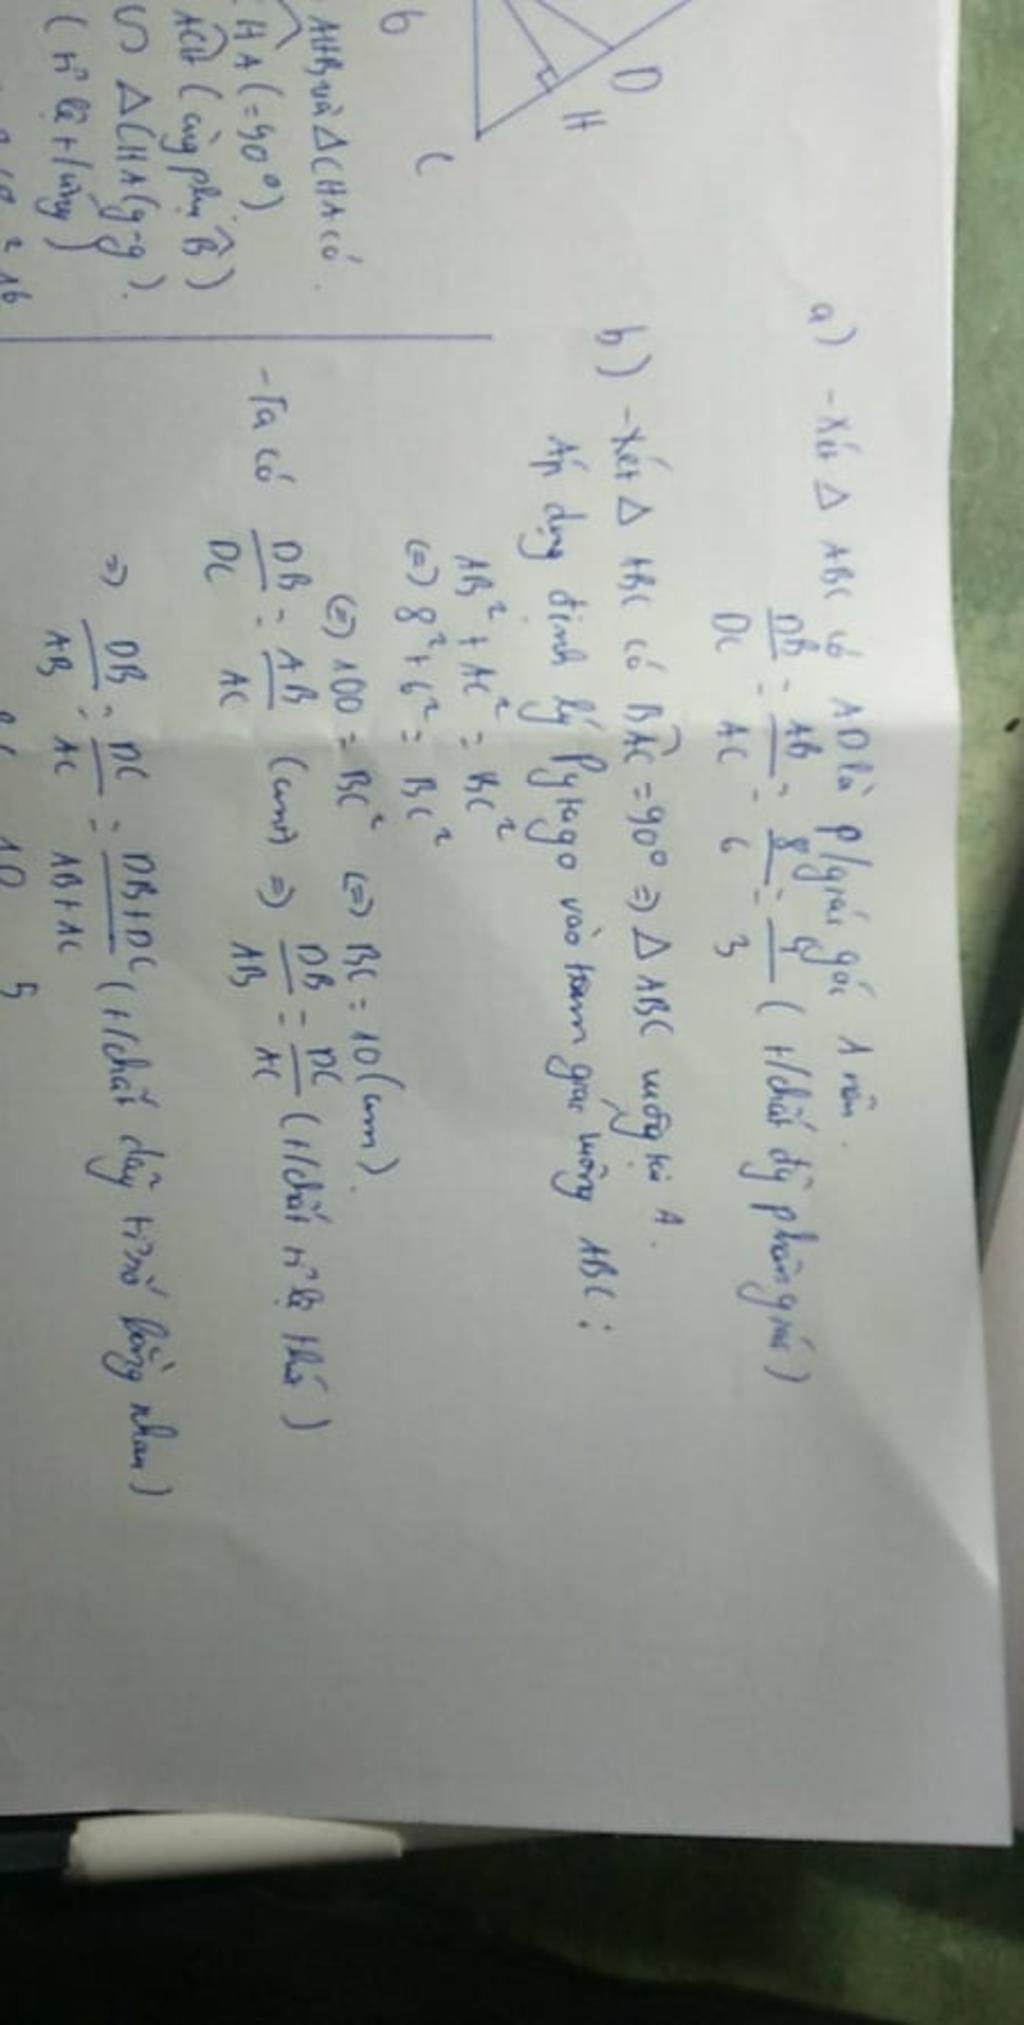 D
H
6
C
a) - Xét Δ ABC có AD là p/giác góc A nên.
DB/DC = AB/AC = 8/6 = 4/3 (t/chất đg phân giác)
b) - Xét Δ ABC có BAC = 90° => Δ ABC vuông tại A.
Áp dụng định lý Pytago vào tam giác vuông ABC :
AB² + AC² = BC²
(=) 8² + 6² = BC²
(=) 100 = BC² (=) BC = 10 (cm).
- Ta có DB/DC = AB/AC (cmt) => DB/AB = DC/AC (t/chất tỉ lệ thức)
=> DB/AB = DC/AC = DB+DC/AB+AC (t/chất dãy tỉ số bằng nhau)
10 5
AHB và Δ CHA có.
HA (=90°)
ACH (cùng phụ B)
S Δ CHA (g-g).
(tỉ lệ t/ứng)